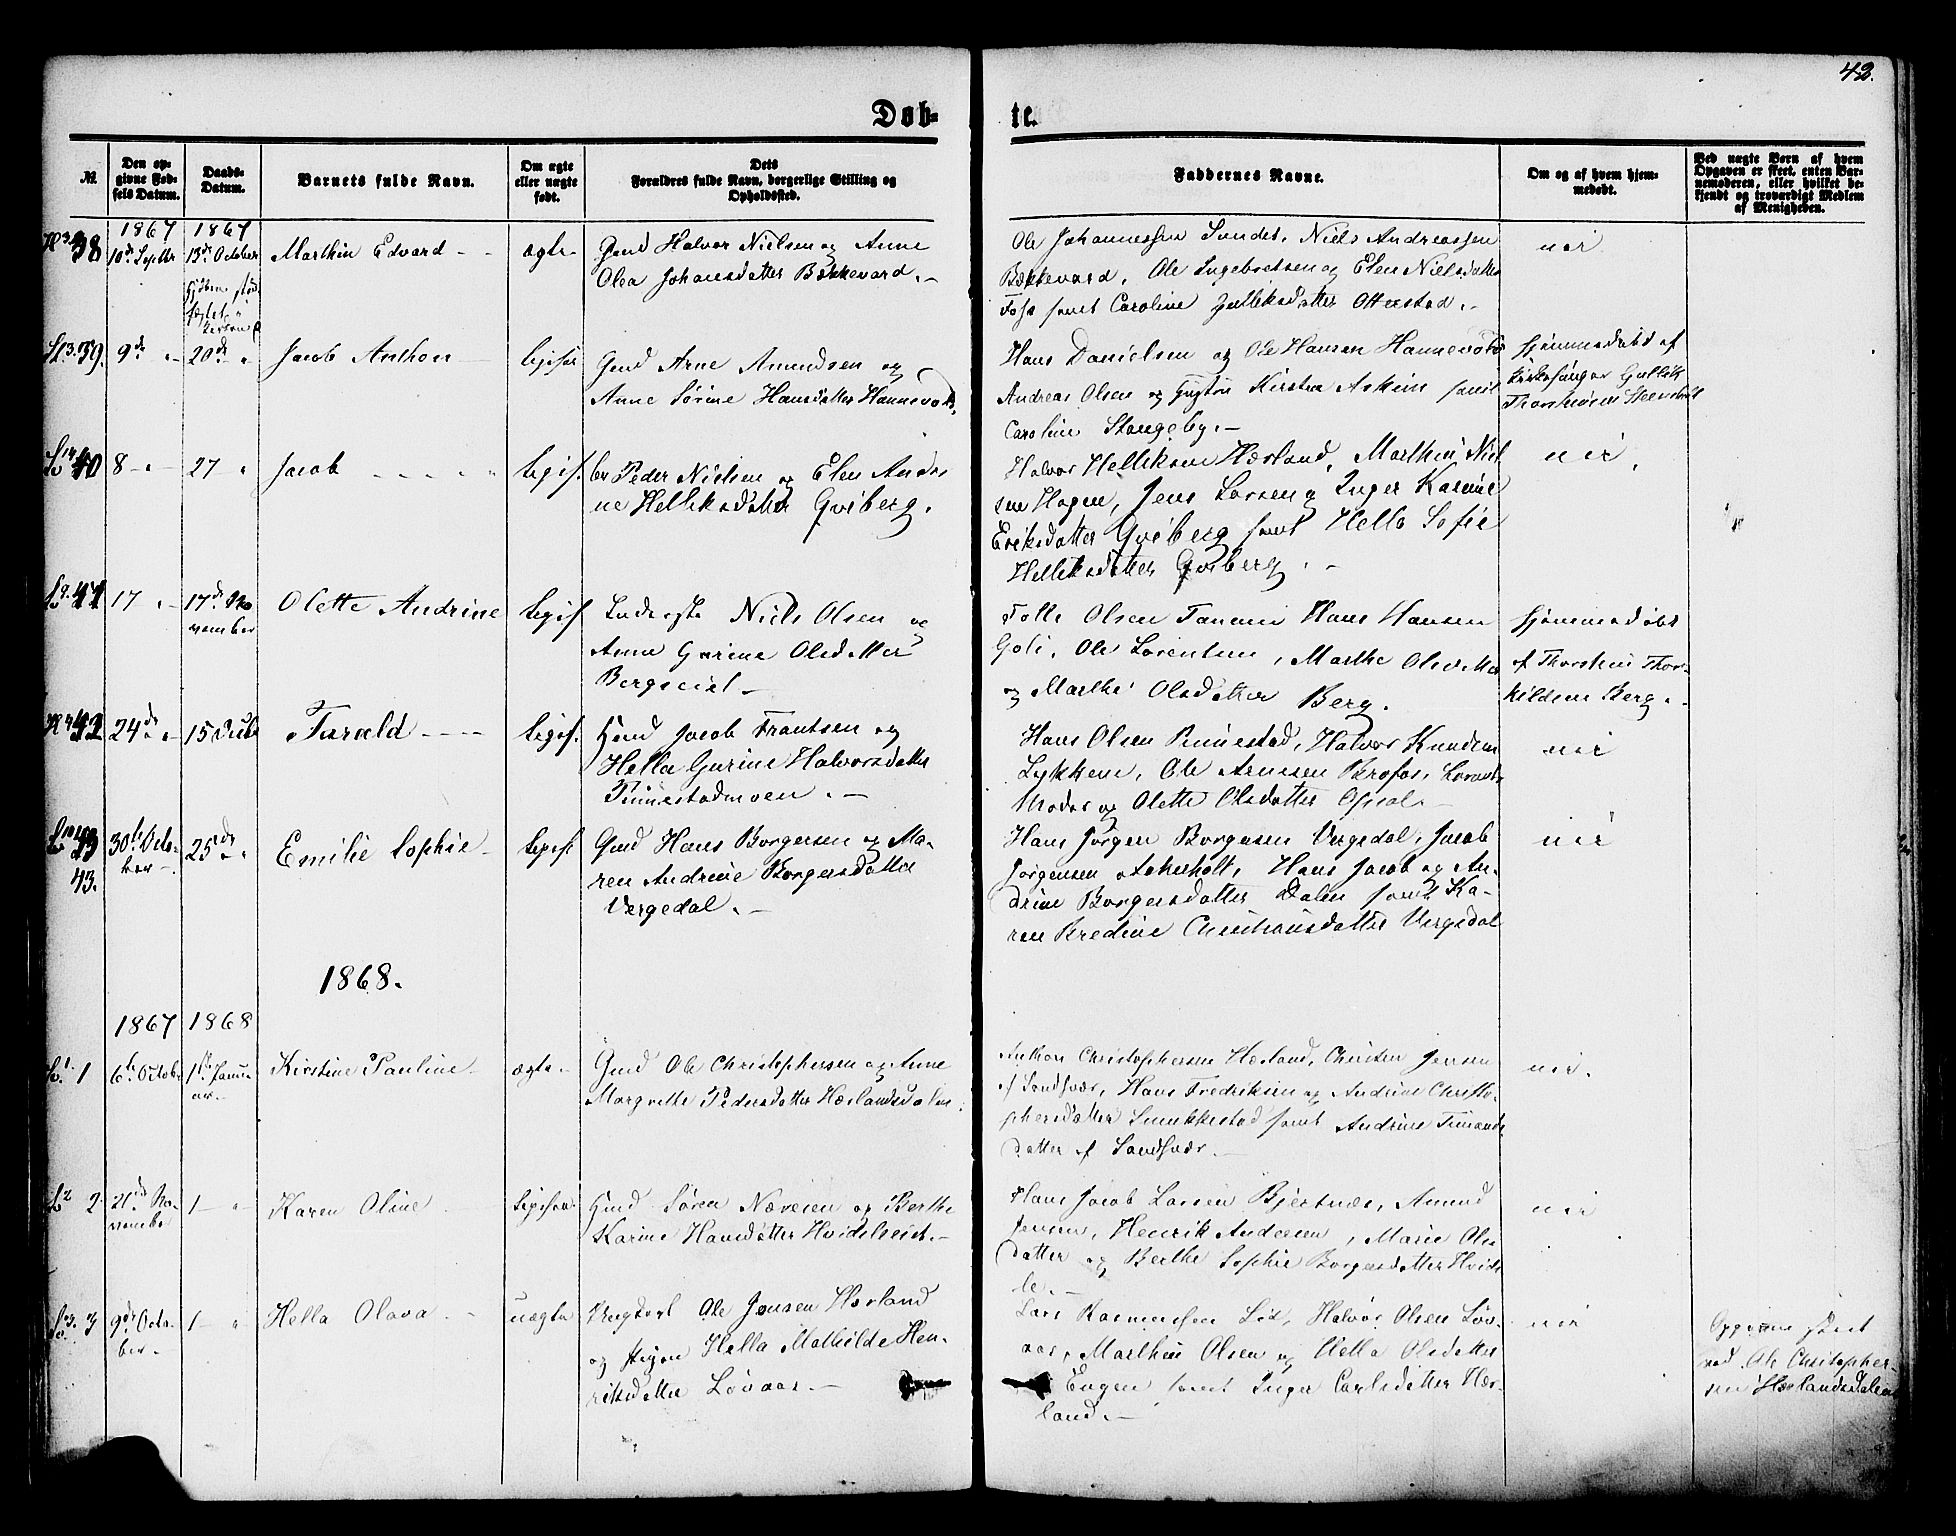 42.
Døb=
te.
№.
Den op-
givne Fød-
sels Datum.
Daabs-
Datum.
Barnets fulde Navn.
Om ægte
eller uægte
født.
Dets
Forældres fulde Navn, borgerlige Stilling og
Opholdssted.
Faddernes Navne.
Om og af hvem hjem-
medøbt.
Ved uægte Børn af hvem
Opgaven er skeet, enten Bar-
nemoderen, eller hvilket be-
kjendt og troværdigt Medlem
af Menigheden.
1867 1867
38 10de Septbr 13de October Marthin Edvard ægte Gmd Halvor Nielsen og Anne
Olea Johansdatter Bekkevard.
Ole Johannessen Sundet, Niels Andreassen
Bekkevard, Ole Ingebretsen og Elen Nielsdatter
Foss samt Caroline Otterstad.
nei
39. 9de 20de Jacob Anthon ligesaa Gmd Arne Amundsen og
Anne Sørine Hansdatter Hannevold.
Hans Danielsen og Ole Hansen Hannevold
Andreas Olsen og Kirstine Askim samt
Caroline Stangeby.
hjemmedøbt af
Kirkesanger Gullik
Thorstensen
40 8 27 Jacob ligesf. Peder Nielsen og Elen Andri
ne Helliksdatter Gviberg.
Halvor Helliksen Hærland, Marthin Niel
sen Hagen, Jens Larsen og Inger Karine
Eriksdatter Gviberg samt Hella Sofie
Helliksdatter Gviberg.
nei
41 17 17de No
vember Olette Andrine ligesf. Inderste Niels Olsen og
Anne Gurine Olsdatter
Bergseiet
Tolle Olsen Hans Hansen
Goli, Ole Lorentsen, Marthe
og Marthe Olsdatter Berg.
hjemmedøbt
af Thorsten Thor-
kildsen Berg.
42 24de 15 Taralld ligesf. Gmd Jacob Frantsen og
Hella Gurine Halvorsdatter
Tinnestadmoen.
Hans Olsen Rinnestad, Halvor Knudsen
Lykken, Ole Arnesen Brofos,
Moder og Olette Olsdatter Opsal.
nei
43 30te Octo-
ber 25de Emilie Sophie ligesf Gmd Hans Borgersen og Ma-
ren Andrine Borgersdatter
Vergedal.
43.
Hans Jørgen Borgersen Vergedal, Jacob
Jørgensen Askeholt, Hans Jacob og An-
drine Borgersdatter Dalen samt Ka-
ren Bredine Christiansdatter Vergedal
nei
1868.
1867 1868
1 6te Octob. 1ste Janu-
ar. Kirstine Pauline ægte Gmd Ole Christophersen og Anne
Margrethe Pedersdatter Hærlandsdalen.
Anthon Christophersen Hærland, Christen Jensen
af Sandsvær, Hans Fredriksen og Andrine Christo-
phersdatter Smukkestad samt Andrine Simonds
datter af Sandsvær.
nei.
2 21de No-
vember 1 Karen Oline ligesaa Gmd Søren Næveien og Berthe
Karine Hansdatter Hvidelseiet.
Hans Jacob Larsen Bjertnæs, Amund
Jensen, Henrik Andersen, Marie Ols
datter og Berthe Sophie Borgersdatter Hvids
le.
nei
3 9de Octo-
ber. 1 Hella Olava uægte Ungkarl Ole Jensen Hærland
og Pigen Hella Mathilde Hen-
riksdatter Løvaas.
Lars Rasmussen Lid, Halvor Olsen Løv-
aas, Marthin Olsen og Hella Olsdatter
Eugen samt Inger Carlsdatter Hær-
land.
nei
Opgivne skeet
ved Ole Christopher-
sen Hærlandsdalen